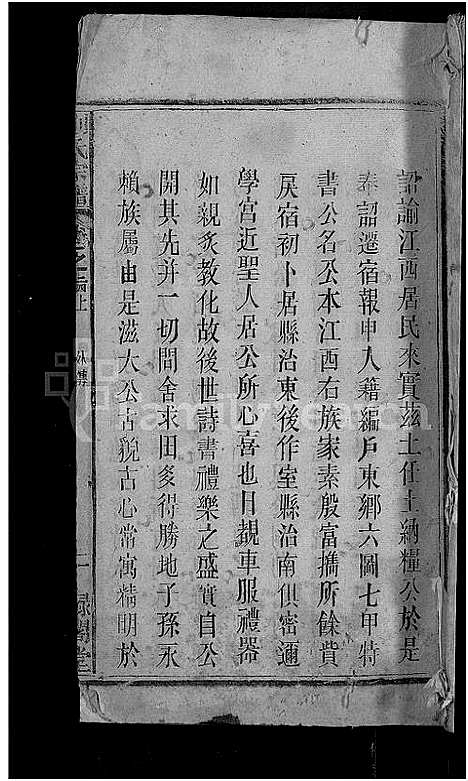 詔諭江西居民來實茲土任土納糧公於是
奉詔遷宿報申入籍編戶東鄉六圖七甲特
書公名公本江西右族家素殷富攜所餘貲
戾宿初卜居縣治東後作室縣治南俱密邇
學宮近聖人居公所心喜也目覩車服禮器
如親炙教化故後世詩書禮樂之盛實自公
開其先并一切間舍求田多得勝地子孫永
賴族屬由是滋大公古貌古心常寓精明於
氏宗譜
卷之
上
外傳
一